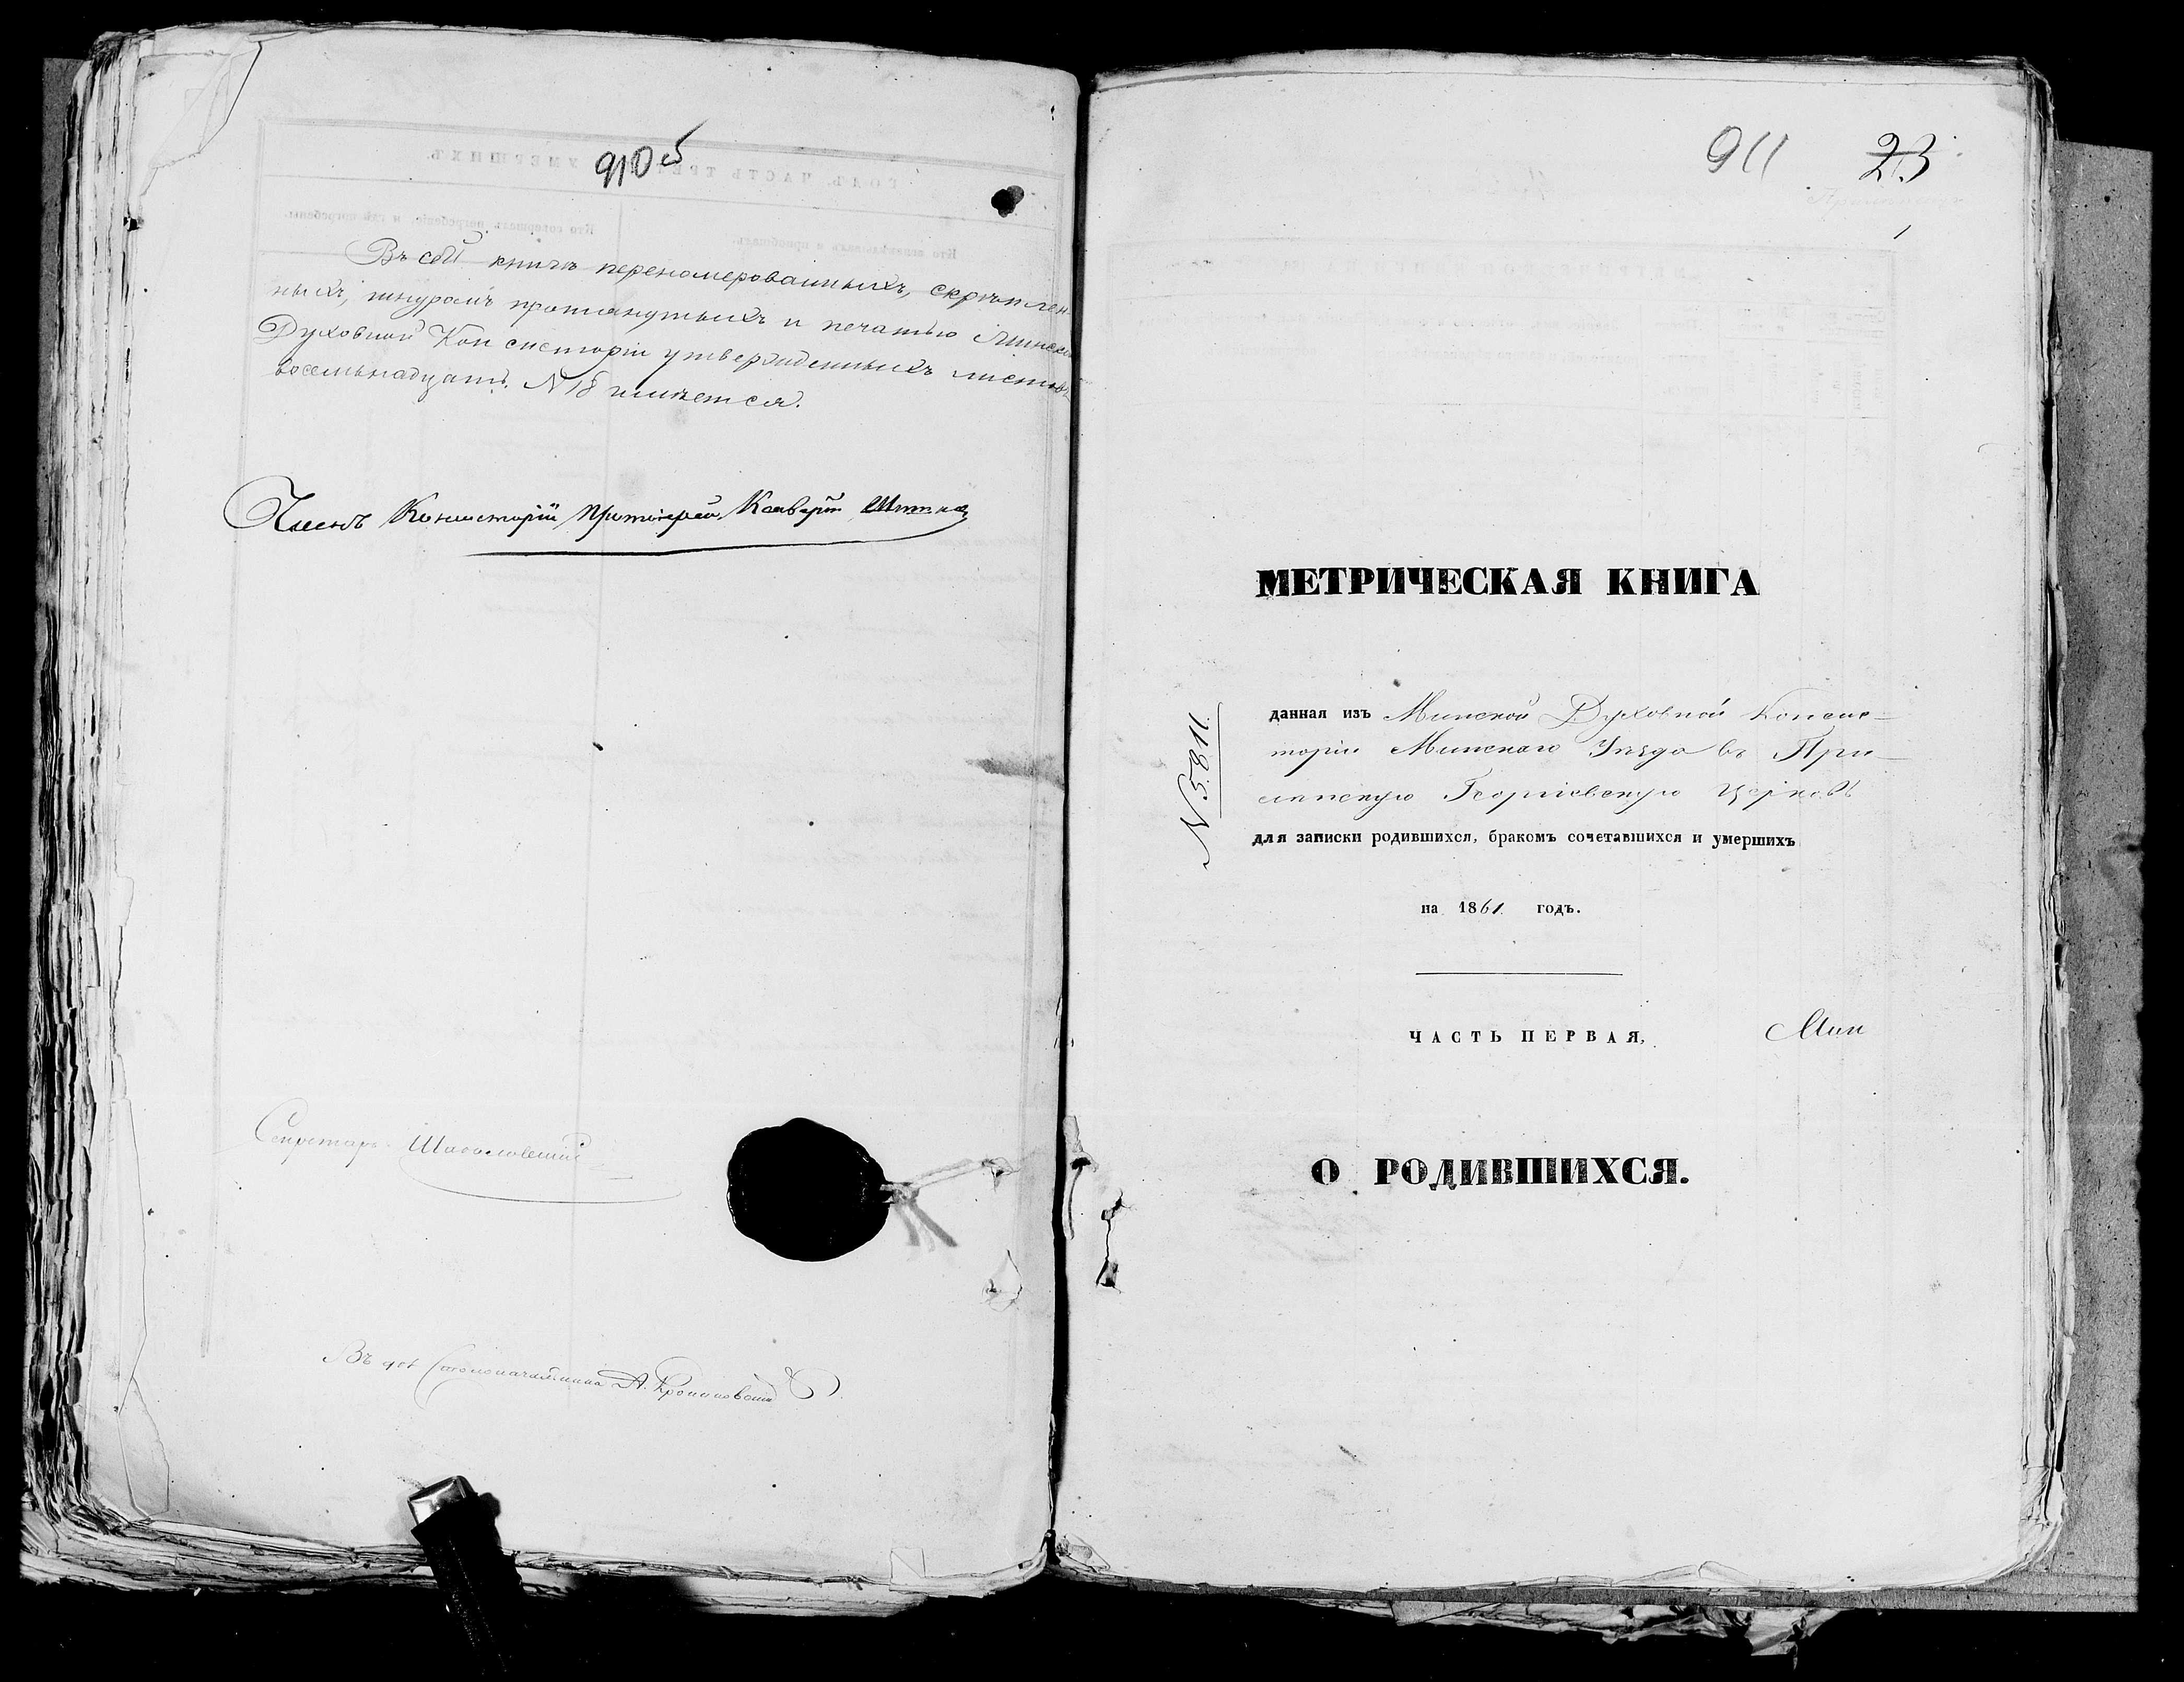 910 об
Въ сей книгѣ перенумерованныхъ, скрѣплен-
ныхъ, шнуромъ протянутыхъ и печатью Минской
Духовной Консисторіи утвержденныхъ листовъ
восемьнадцать. N 18 имѣется.
Членъ Консисторіи, Протоіерей
Секретарь
Въ дол. Столоначальника А.
911 23
1
МЕТРИЧЕСКАЯ КНИГА
данная изъ Минской Духовной Консис-
торіи Минскаго Уѣзда въ При
лукскую Георгіевскую Церковь
N 5811.
для записки родившихся, бракомъ сочетавшихся и умершихъ
на 1861 годъ.
ЧАСТЬ ПЕРВАЯ,
Мин
О РОДИВШИХСЯ.